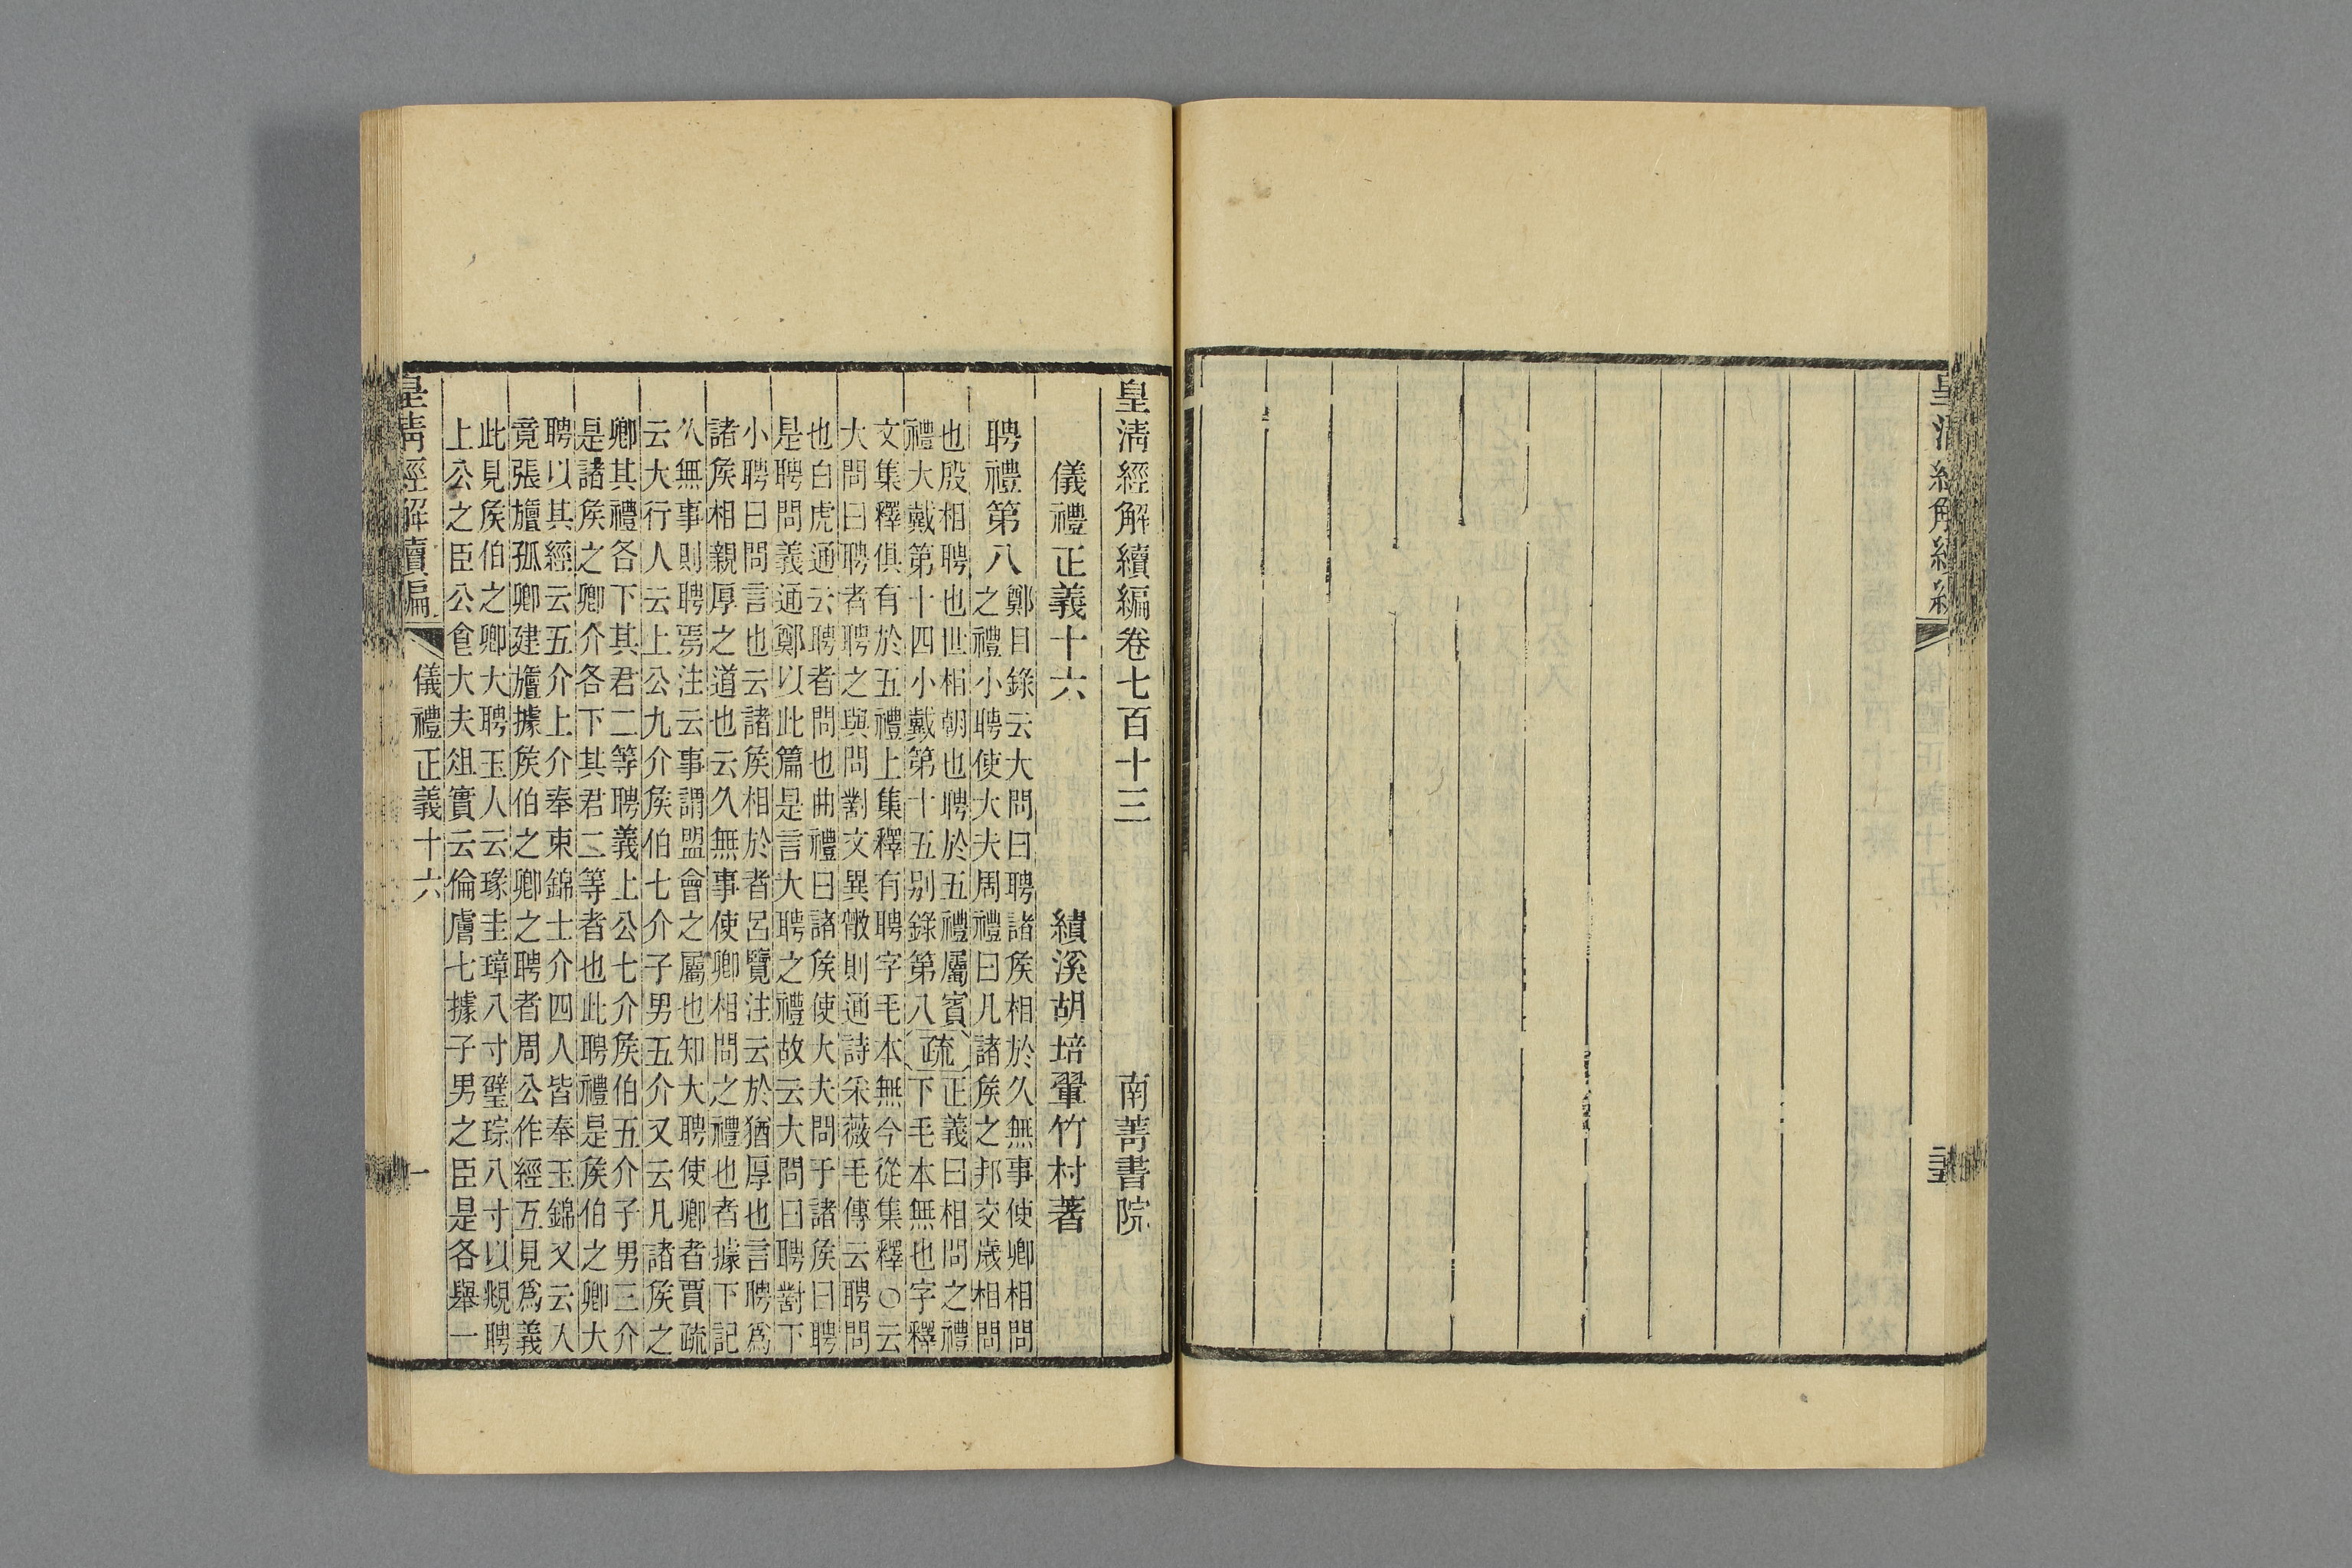 皇清經解續編卷七百十三　南菁書院
儀禮正義十六　績溪胡培翬竹村著
聘禮第八
鄭目錄云大問曰聘諸矦相於久無事使卿相問
之禮小聘使大夫周禮曰凡諸矦之邦交歲相問
也殷相聘也世相朝也聘於五禮屬賓
禮大戴第十四小戴第十五别錄第八
疏
正義曰相問之禮
下毛本無也字釋
文集釋俱有於五禮上集釋有聘字毛本無今從集釋○云
大問曰聘者聘之與問對文異散則通詩采薇毛傳云聘問
也白虎通云聘者問也曲禮曰諸矦使大夫問于諸矦曰聘
是聘問義通鄭以此篇是言大聘之禮故云大問曰聘對下
小聘曰問言也云諸矦相於者呂覽注云於猶厚也言聘爲
諸矦相親厚之道也云久無事使卿相問之禮也者據下記
久無事則聘焉注云事謂盟會之屬也知大聘使卿者賈疏
云大行人云上公九介矦伯七介子男五介又云凡諸矦之
卿其禮各下其君二等聘義上公七介矦伯五介子男三介
是諸矦之卿介各下其君二等者也此聘禮是矦伯之卿大
聘以其經云五介上介奉束錦士介四人皆奉玉錦又云入
竟張旜孤卿建旜據矦伯之卿之聘者周公作經互見爲義
此見矦伯之卿大聘玉人云瑑圭璋八寸璧琮八寸以覜聘
上公之臣公食大夫俎實云倫膚七據子男之臣是各舉一
皇清經解續編　儀禮正義十六　一